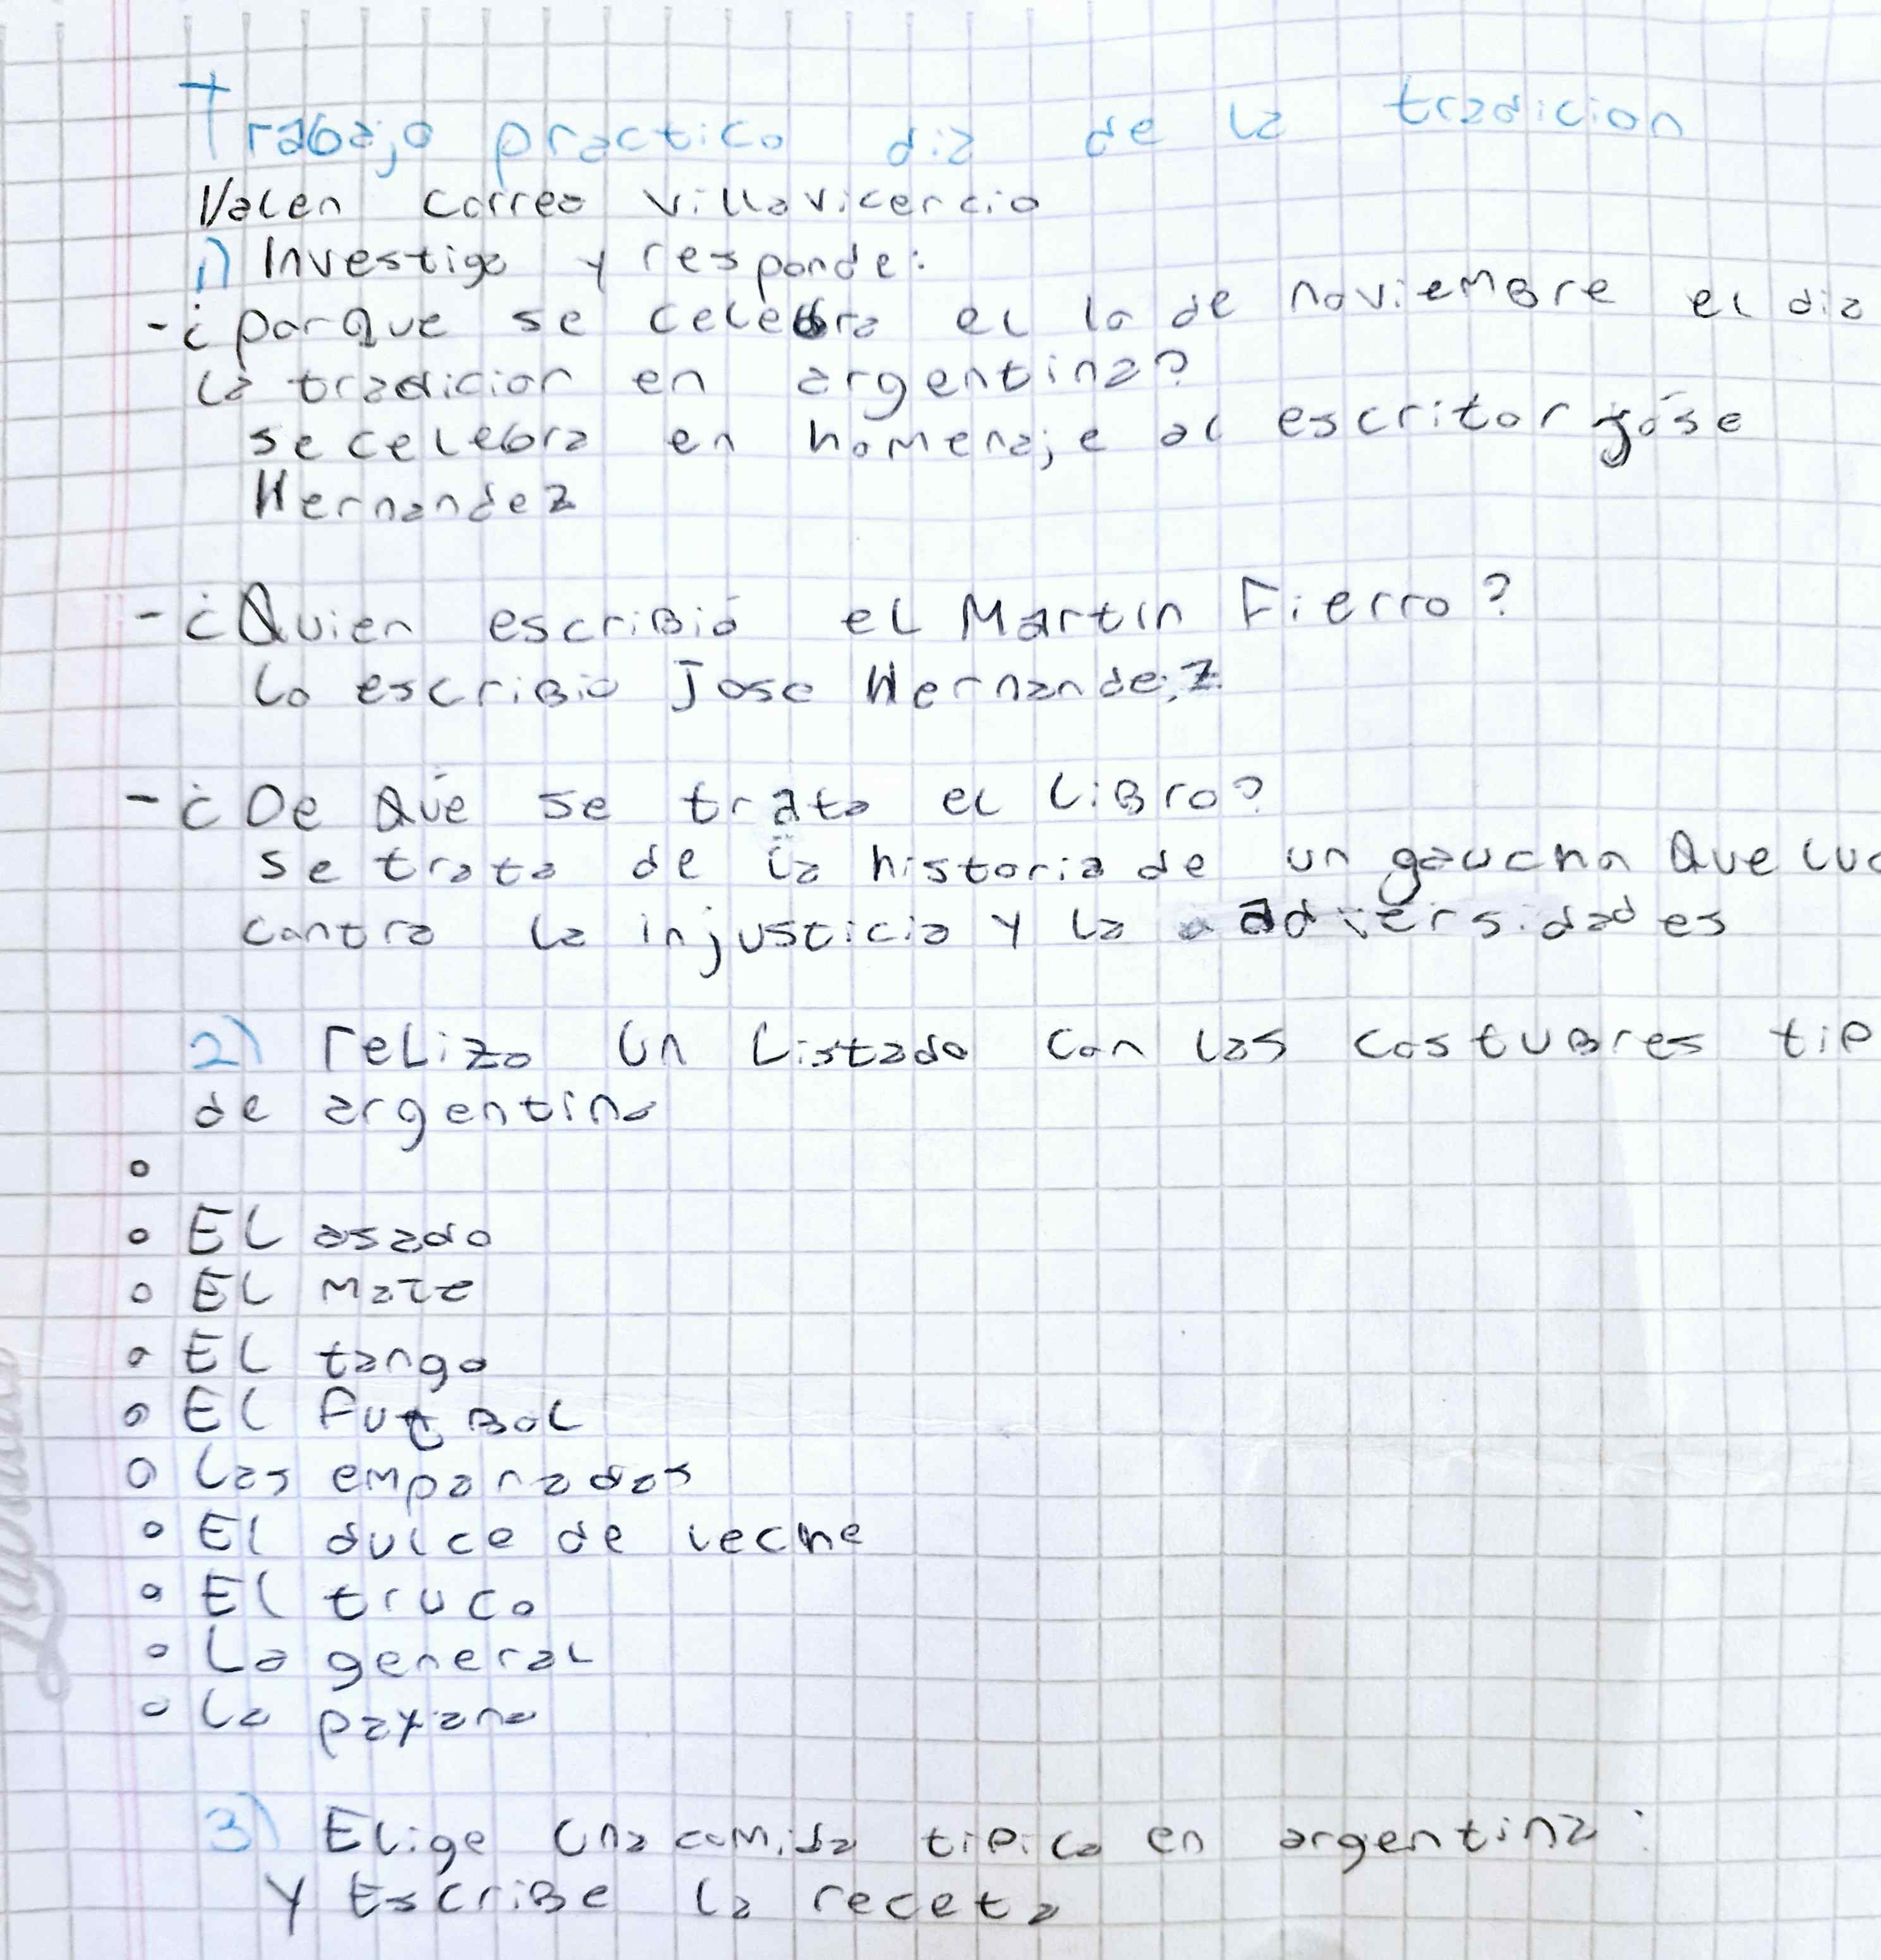 Trabajo practico dia de la tradicion
Valen Correa Villavicencio
1) Investiga y responde:
- ¿porque se celebra el 10 de noviembre el dia
la tradicion en argentina?
se celebra en homenaje al escritor jóse
Hernandez
- ¿Quien escribió el Martin Fierro?
lo escribio Jose Hernandez
- ¿De Qué se trata el Libro?
se trata de la historia de un gaucho Que luc
contra la injusticia y la adversidades
2) relizo un Listado con las costubres tip
de argentina
EL asado
EL Mate
EL tango
EL FutBol
las empanadas
El dulce de leche
El truco
La general
La payana
3) Elige una comida tipica en argentina:
y EscriBe la receta